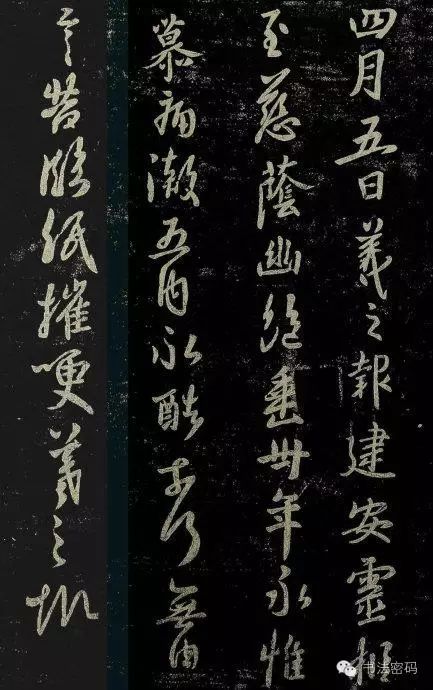 四月五日羲之報建安靈柩
至慈蔭幽絕垂卅年永惟
慕痛徹五內永酷奈何無由
言告臨紙摧哽羲之報
书法密码